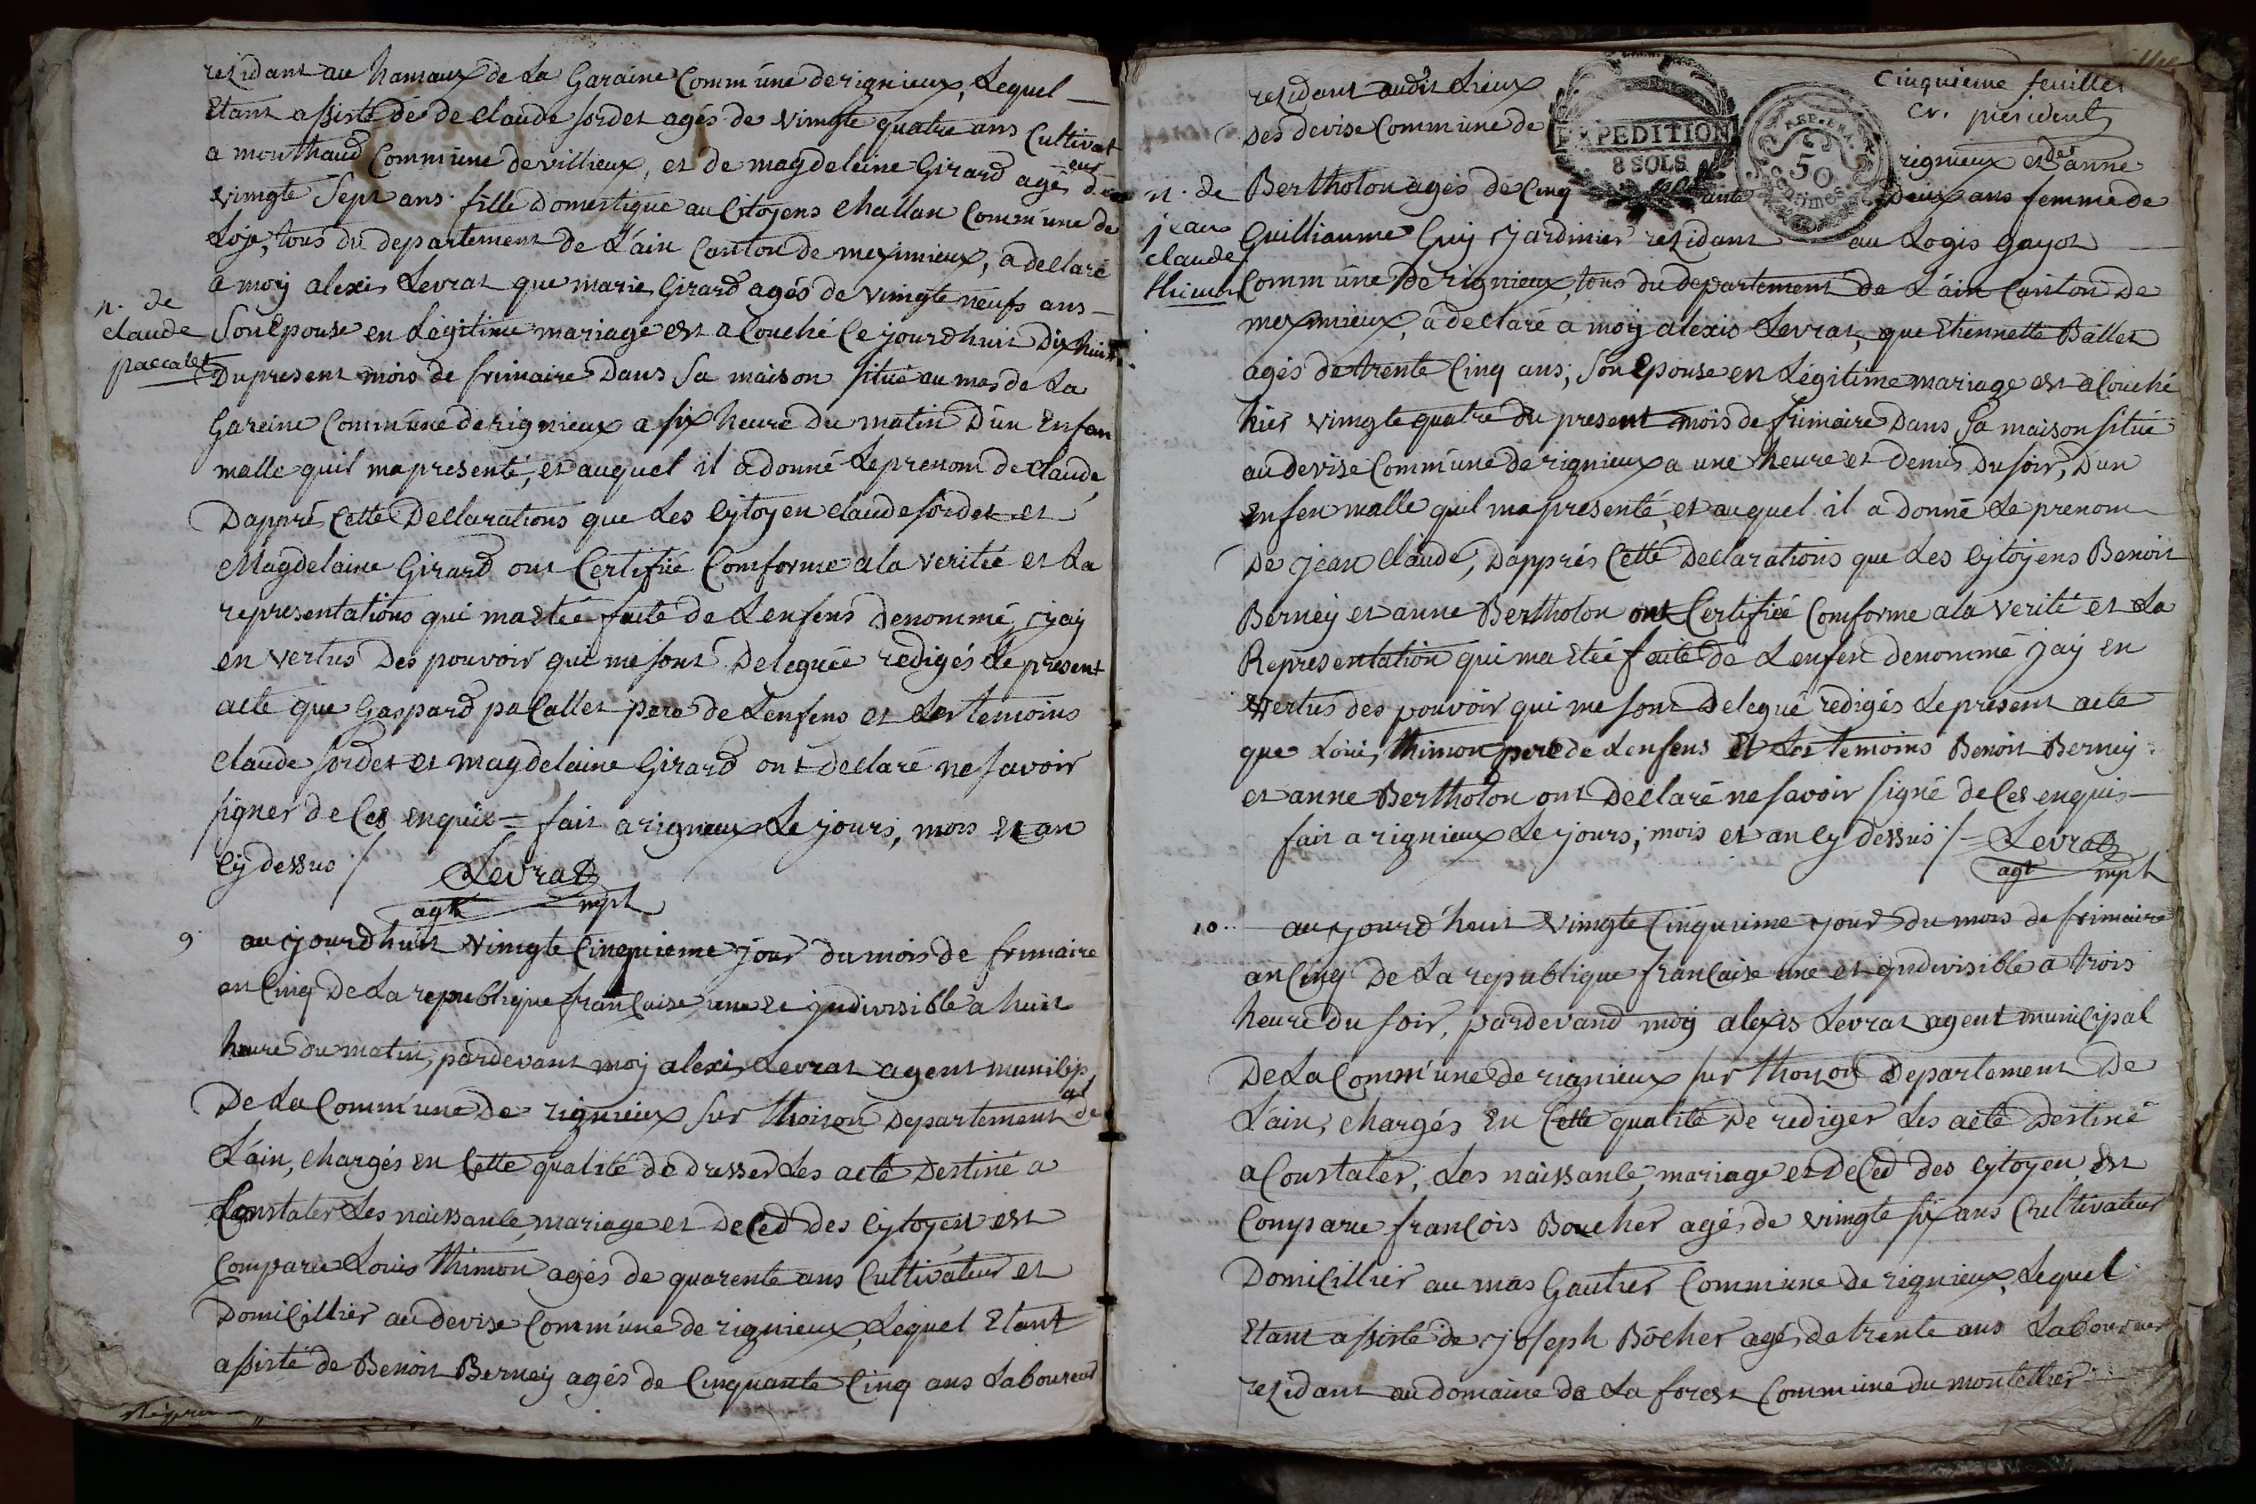 residant au hamaux de La Garaine Commune derignieux, Lequel
Etant assisté dé de claude sordet agés de vingte quatre ans Cultivat
eur
a monthaud Commune devillieux, et de magdeleine Girard agés de
vingte Sept ans fille domestique au Citoyens challan Commune de
Loje, tous du departement de L'ain Canton de meximieux, a declaré
a moy alexis Levrat que marie Girard agés de vingte neufs ans
n. de
claude
paccalet
Son Epouse en Légitime mariage est acouché Ce jourdhuit Dixhuit
Dupresent mois de frimaire Dans Sa maison situé au mas de La
Gareine Commune derignieux a six heure du matin D'un Enfan
malle quil mapresenté, et auquel il adonné Leprenom de claude,
Dapprés Cette Declarations que Les Cytoyen claude sordet et
Magdelaine Girard ont Certifiée Comforme ala veritée et La
representations qui ma etée faite de Lenfens Denommé, jay
en vertus Des pouvoir qui me sont Deleguée redigés Le present
acte que Gaspard paCallet pere de Lenfens et Les temoins
claude sordet et magdelaine Girard ont declaré ne savoir
signer de Ces enquix = fait arignieux Le jours, mois et an
Cy dessus / Levrat
agt mpl
9. aujourdhuit vingte Cinquieme jour du mois de frimaire
an Cinq De La republique française une et jndivisible a huit
heure du matin, pardevant moy alexis Levrat agent municip
al
De La Commune De rignieux sur thoison Departement de
L'ain, chargés en Cette qualité de dresser Les acte Destiné a
Constater Les naissance, mariage et deCed des Cytoyen est
Comparu Louis thimon agés de quarente ans Cultivateur et
DomiCillier audevise Commune de rignieux, Lequel Etant
assisté de Benoit Berney agés de Cinquante Cinq ans Laboureur
Cinquieme feuillet
Cr. president
EXPEDITION
8 SOLS
REP. FRA.
50
centimes
residant audit Lieux
Des devise Commune de rignieux et des anne
n. de
jean
claude
thimon
Bertholon agés de Cinquante Deux ans femme de
Guilliaume Guy jardinier residant au Logis gayot
Commune De rignieux, tous du departement de L'ain Canton De
meximieux, a declaré a moy alexis Levrat, que Etiennette Ballet
agés de trente Cinq ans, son Epouse en Légitime mariage est acouché
hier vingte quatre du present mois de frimaire Dans Sa maison situé
au devise Commune de rignieux a une heure et Demis Du soir, D'un
enfen malle quil mapresenté, et auquel il a donné Le prenom
De jean claude, Dapprés Cette Declarations que Les Cytoyens Benoit
Berney et anne Bertholon ont Certifiée Comforme ala verité et La
Representation qui ma etée faite de Lenfen denommé jay en
vertus des pouvoir qui me sont Delegué redigés Le present acte
que Loui thimon pere de Lenfens Et Les temoins Benoit Berney
et anne Bertholon ont Declaré ne savoir signé de Ces enquis
fait a rignieux Le jours, mois et an Cy dessus / Levrat
agt mpl
10. aujourd'huit vingte Cinquieme jour du mois de frimaire
an Cinq De La republique française une et jndivisible a trois
heure du soir, pardevand moy alexis Levrat agent municipal
De La Commune de rignieux sur thoison Departement De
L'ain, chargés en Cette qualité De rediger Les acte Destiné
a Constater, Les naissance, mariage et deCed des Cytoyen, est
Comparu françois Boucher agés de vingte six ans Cultivateur
DomiCillier au mas Gautier Commune de rignieux, Lequel
Etant assisté de joseph Bocher agés de trente ans Laboureur
residant au domaine de La forest Commune du montellier